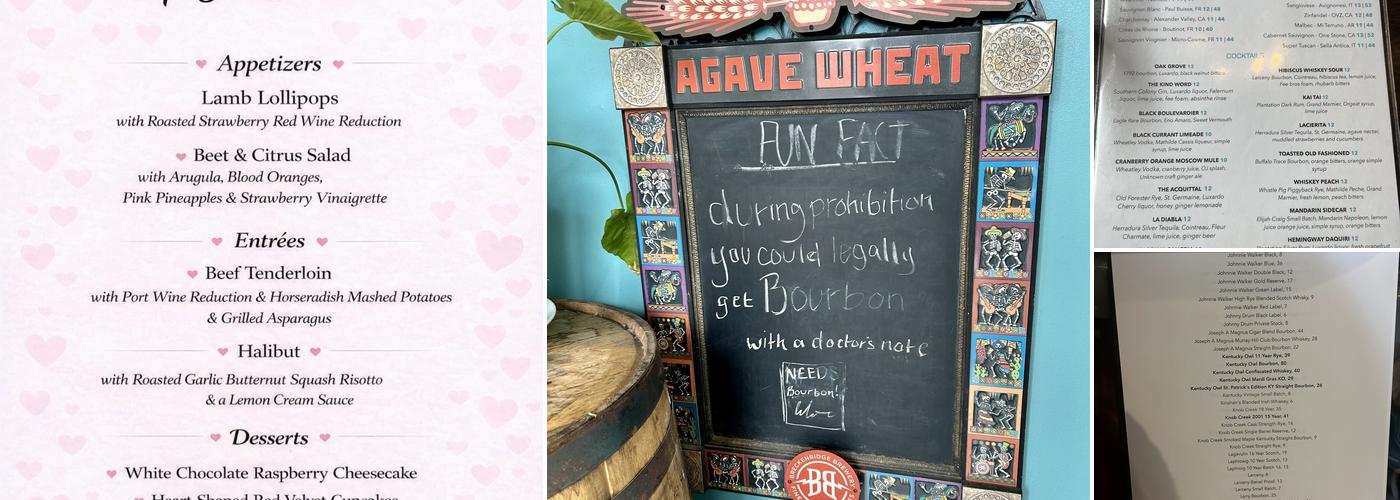 Appetizers
Lamb Lollipops
with Roasted Strawberry Red Wine Reduction
Beet & Citrus Salad
with Arugula, Blood Oranges,
Pink Pineapples & Strawberry Vinaigrette
Entrées
Beef Tenderloin
with Port Wine Reduction & Horseradish Mashed Potatoes
& Grilled Asparagus
Halibut
with Roasted Garlic Butternut Squash Risotto
& a Lemon Cream Sauce
Desserts
White Chocolate Raspberry Cheesecake
Heart-Shaped Red Velvet Cupcakes
AGAVE WHEAT
FUN FACT
during prohibition
you could legally
get Bourbon
with a doctor's note
NEEDS
Bourbon!
BRECKENRIDGE BREWERY
BB
Sauvignon Blanc - Paul Buisse, FR 12 | 48
Chardonnay - Alexander Valley, CA 11 | 44
Cotes de Rhone - Boutinot, FR 10 | 40
Sauvignon Viognier - Micro-Cosme, FR 11 | 44
Sangiovese - Avignonesi, IT 13 | 52
Zinfandel - OVZ, CA 12 | 48
Malbec - Mi Terruno, AR 11 | 44
Cabernet Sauvignon - One Stone, CA 13 | 52
Super Tuscan - Sella Antica, IT 11 | 44
COCKTAILS
OAK GROVE 12
1792 bourbon, Luxardo, black walnut bitters
THE KIND WORD 12
Southern Colony Gin, Luxardo liquor, Falernum
liquor, lime juice, fee foam, absinthe rinse
BLACK BOULEVARDIER 12
Eagle Rare Bourbon, Eno Amaro, Sweet Vermouth
BLACK CURRANT LIMEADE 10
Wheatley Vodka, Mathilde Cassis liqueur, simple
syrup, lime juice
CRANBERRY ORANGE MOSCOW MULE 10
Wheatley Vodka, cranberry juice, OJ splash,
Unknown craft ginger ale
THE ACQUITTAL 12
Old Forester Rye, St. Germaine, Luxardo
Cherry liquor, honey ginger lemonade
LA DIABLA 12
Herradura Silver Tequila, Cointreau, Fleur
Charmate, lime juice, ginger beer
HIBISCUS WHISKEY SOUR 12
Larceny Bourbon, Cointreau, hibiscus tea, lemon juice,
Fee bros foam, rhubarb bitters
KAI TAI 12
Plantation Dark Rum, Grand Marnier, Orgeat syrup,
lime juice
LACIERITA 12
Herradura Silver Tequila, St. Germaine, agave nectar,
muddled strawberries and cucumbers
TOASTED OLD FASHIONED 12
Buffalo Trace Bourbon, orange bitters, orange simple
syrup
WHISKEY PEACH 12
Whistle Pig Piggyback Rye, Mathilde Peche, Grand
Marnier, fresh lemon, peach bitters
MANDARIN SIDECAR 12
Elijah Craig Small Batch, Mandarin Napoleon, lemon
juice orange juice, simple syrup, orange bitters
HEMINGWAY DAIQUIRI 12
Johnnie Walker Black, 8
Johnnie Walker Blue, 36
Johnnie Walker Double Black, 12
Johnnie Walker Gold Reserve, 17
Johnnie Walker Green Label, 15
Johnnie Walker High Rye Blended Scotch Whisky, 9
Johnnie Walker Red Label, 7
Johnny Drum Black Label, 6
Johnny Drum Private Stock, 8
Joseph A Magnus Cigar Blend Bourbon, 44
Joseph A Magnus Murray Hill Club Bourbon Whiskey, 28
Joseph A Magnus Straight Bourbon, 22
Kentucky Owl 11 Year Rye, 39
Kentucky Owl Bourbon, 80
Kentucky Owl Confiscated Whiskey, 40
Kentucky Owl Mardi Gras KO, 29
Kentucky Owl St. Patrick's Edition KY Straight Bourbon, 26
Kentucky Vintage Small Batch, 8
Kinahan's Blended Irish Whiskey, 6
Knob Creek 18 Year, 35
Knob Creek 2001 15 Year, 41
Knob Creek Cask Strength Rye, 16
Knob Creek Single Barrel Reserve, 12
Knob Creek Smoked Maple Kentucky Straight Bourbon, 9
Knob Creek Straight Rye, 9
Lagavulin 16 Year Scotch, 19
Laphroaig 10 Year Scotch, 13
Laphroaig 10 Year Batch 16, 15
Larceny, 6
Larceny Barrel Proof, 13
Larceny Small Batch, 7
Larry Bourbon, 25